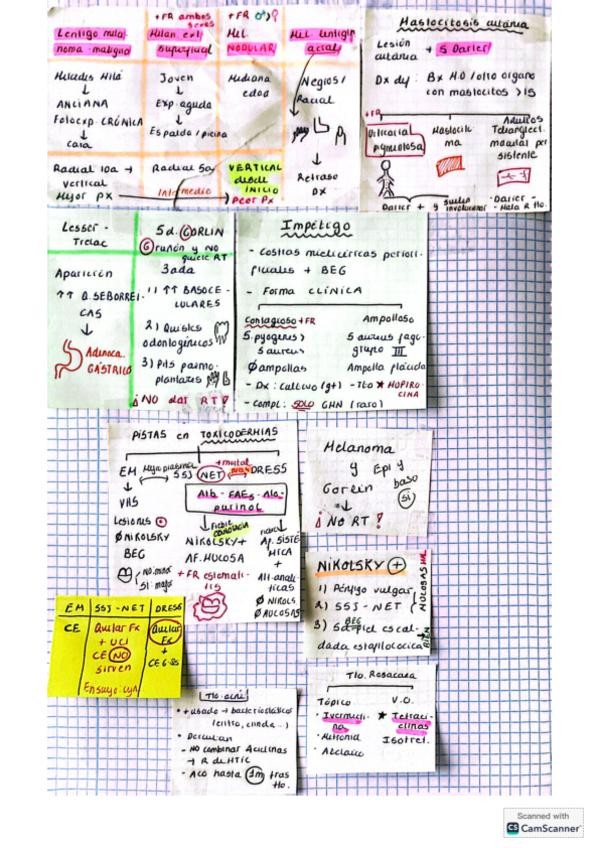 + FR ambos sexos
+ FR ♂)♀
Lentigo melanoma maligno
Melan. ext. superficial
Mel NODULAR
Mel lentigin. acral
ANCIANA
Fotoexp. CRÓNICA
↓
cara
Joven
↓
Exp. aguda
↓
Espalda / pierna
Mediana edad
Negros / Racial
↓
Retraso DX
Radial 10a → vertical
Mejor PX
Radial 5a
Intermedio
VERTICAL desde INICIO
Peor Px
Mastocitosis cutánea
Lesión cutánea + S Darier
Dx dif: Bx M.O / otro órgano con mastocitos > 15
+FR
Urticaria pigmentosa
Mastocitoma
Adultos
Telangiect. macular persistente
Leser - Trelat
Aparición
↑↑ Q. SEBORREICAS
↓
Adenoca. GÁSTRICO
Sd. GORLIN
Gruñón y NO quiere RT
3ada
1) ↑↑ BASOCELULARES
2) Quistes odontogénicos
3) Pits palmoplantares
¡NO dar RT!
Impétigo
- Costras mielicéricas periorificiales + BEG
- Forma CLÍNICA
Contagioso +FR
S. pyogenes)
S aureus
Ø ampollas
Ampolloso
S aureus fago grupo III
Ampolla flácida
- Dx: cultivo (g+) - Tto ★ MUPIROCINA
- Compl: SOLO GMN (raro)
PISTAS en TOXICODERMIAS
EM
SSJ
NET
+mortal
DRESS
Alb - FAEs - Alopurinol
↓
VHS
Lesiones
Ø NIKOLSKY
BEG
NO. minor
SI. major
Fiebre
NIKOLSKY+
AF. MUCOSA
+ FR estomatitis
Af. SISTÉMICA
+
Alt. analíticas
Ø NIKOLS
Ø MUCOSAS
Melanoma
y Epi y
Gorlin baso
sí
↓
¡NO RT!
NIKOLSKY +
1) Pénfigo vulgar
2) SSJ - NET
3) Sd. piel escaldada estafilocócica
BEG
MUCOSAS MAL
BIEN
EM | SSJ - NET | DRESS
CE
Quitar Fx
+ UCI
CE NO sirven
Ensayo: cyA
Quitar Fx
+
CE 6 ss
Tto. acné
• + usado → bacteriostáticos (eritro, clinda...)
• Dermatan
- NO combinar Acutinas → R de HTIC
- ACO hasta 1m tras tto.
Tto. Rosacea
Tópico
• Ivermectina
• Metronid
• Azelaico
V.O.
★ Tetraciclinas
Isotret.
Scanned with
CS CamScanner